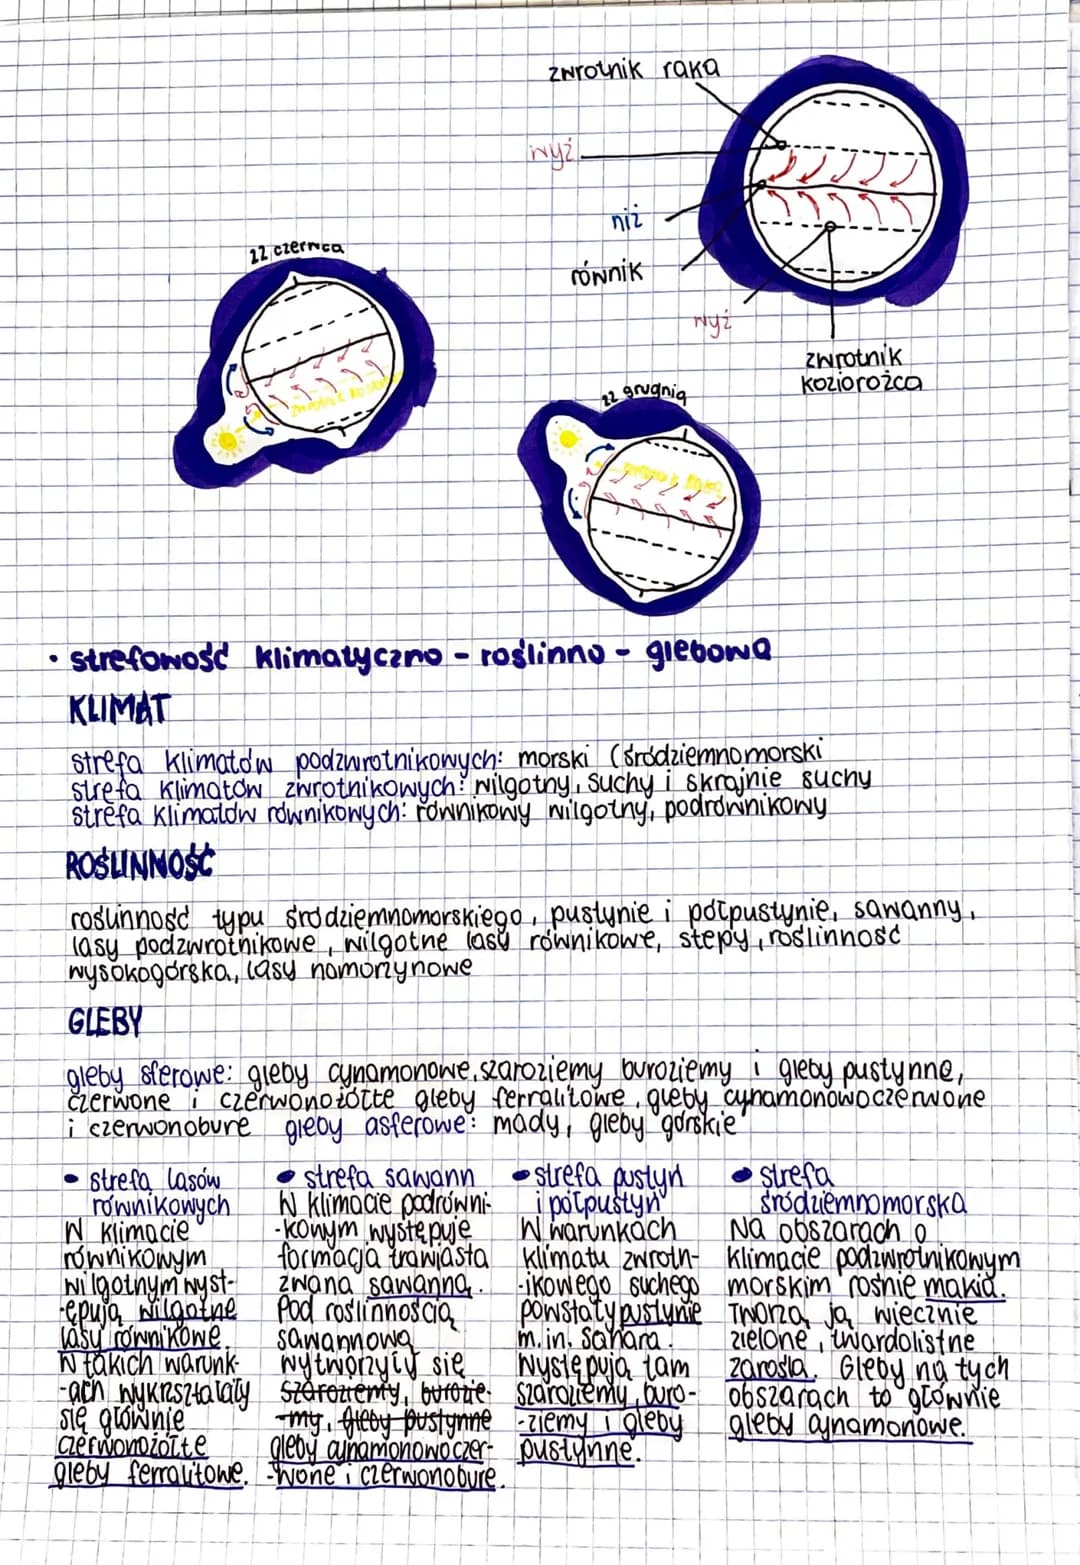 zwrotnik raka
wyż
niż
równik
wyż
zwrotnik
koziorożca
22 czerwca
22 grugnia
• strefowość klimatyczno - roślinno - glebowa
KLIMAT
strefa klimatów podzwrotnikowych: morski (śródziemnomorski
strefa klimatów zwrotnikowych: wilgotny, suchy i skrajnie suchy
strefa klimatów równikowych: równikowy wilgotny, podrównikowy
ROŚLINNOŚĆ
roślinność typu śródziemnomorskiego, pustynie i półpustynie, sawanny,
lasy podzwrotnikowe, wilgotne lasy równikowe, stepy, roślinność
wysokogórska, lasy namorzynowe
GLEBY
gleby sferowe: gleby cynamonowe, szaroziemy buroziemy i gleby pustynne,
czerwone i czerwonożółte gleby ferralitowe, gleby cynamonowoczerwone
i czerwonobure gleby asferowe: mady, gleby górskie
• strefa lasów
równikowych
W klimacie
równikowym
wilgotnym wyst-
-epują wilgotne
lasy równikowe
W takich warunk-
-ach wykrształały
się głównie
czerwonożółte
gleby ferralitowe.
• strefa sawann
W klimacie podrówni-
-kowym występuje
formacja trawiasta
zwana sawanną.
Pod roślinnością
sawannową
wytworzyły się
szaroziemy, burozie-
-my, gleby pustynne
gleby cynamonowoczer-
-wone i czerwonobure.
• strefa pustyń
i półpustyń
W warunkach
klimatu zwrotn-
-ikowego suchego
powstały pustynie
m.in. Sahara.
Występują tam
szaroziemy, buro-
-ziemy i gleby
pustynne.
• strefa
śródziemnomorska
Na obszarach o
klimacie podzwrotnikowym
morskim rośnie makia.
Tworzą ją wiecznie
zielone, twardolistne
zarośla. Gleby na tych
obszarach to głównie
gleby cynamonowe.